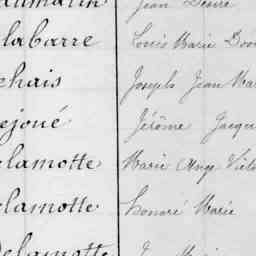 Jean Désiré
labarre Louis Marie
chais Joseph Jean Mar
ejoué Jérôme Jacqu
elamotte Marie Ange Vict
elamotte honoré Marie
Delamotte